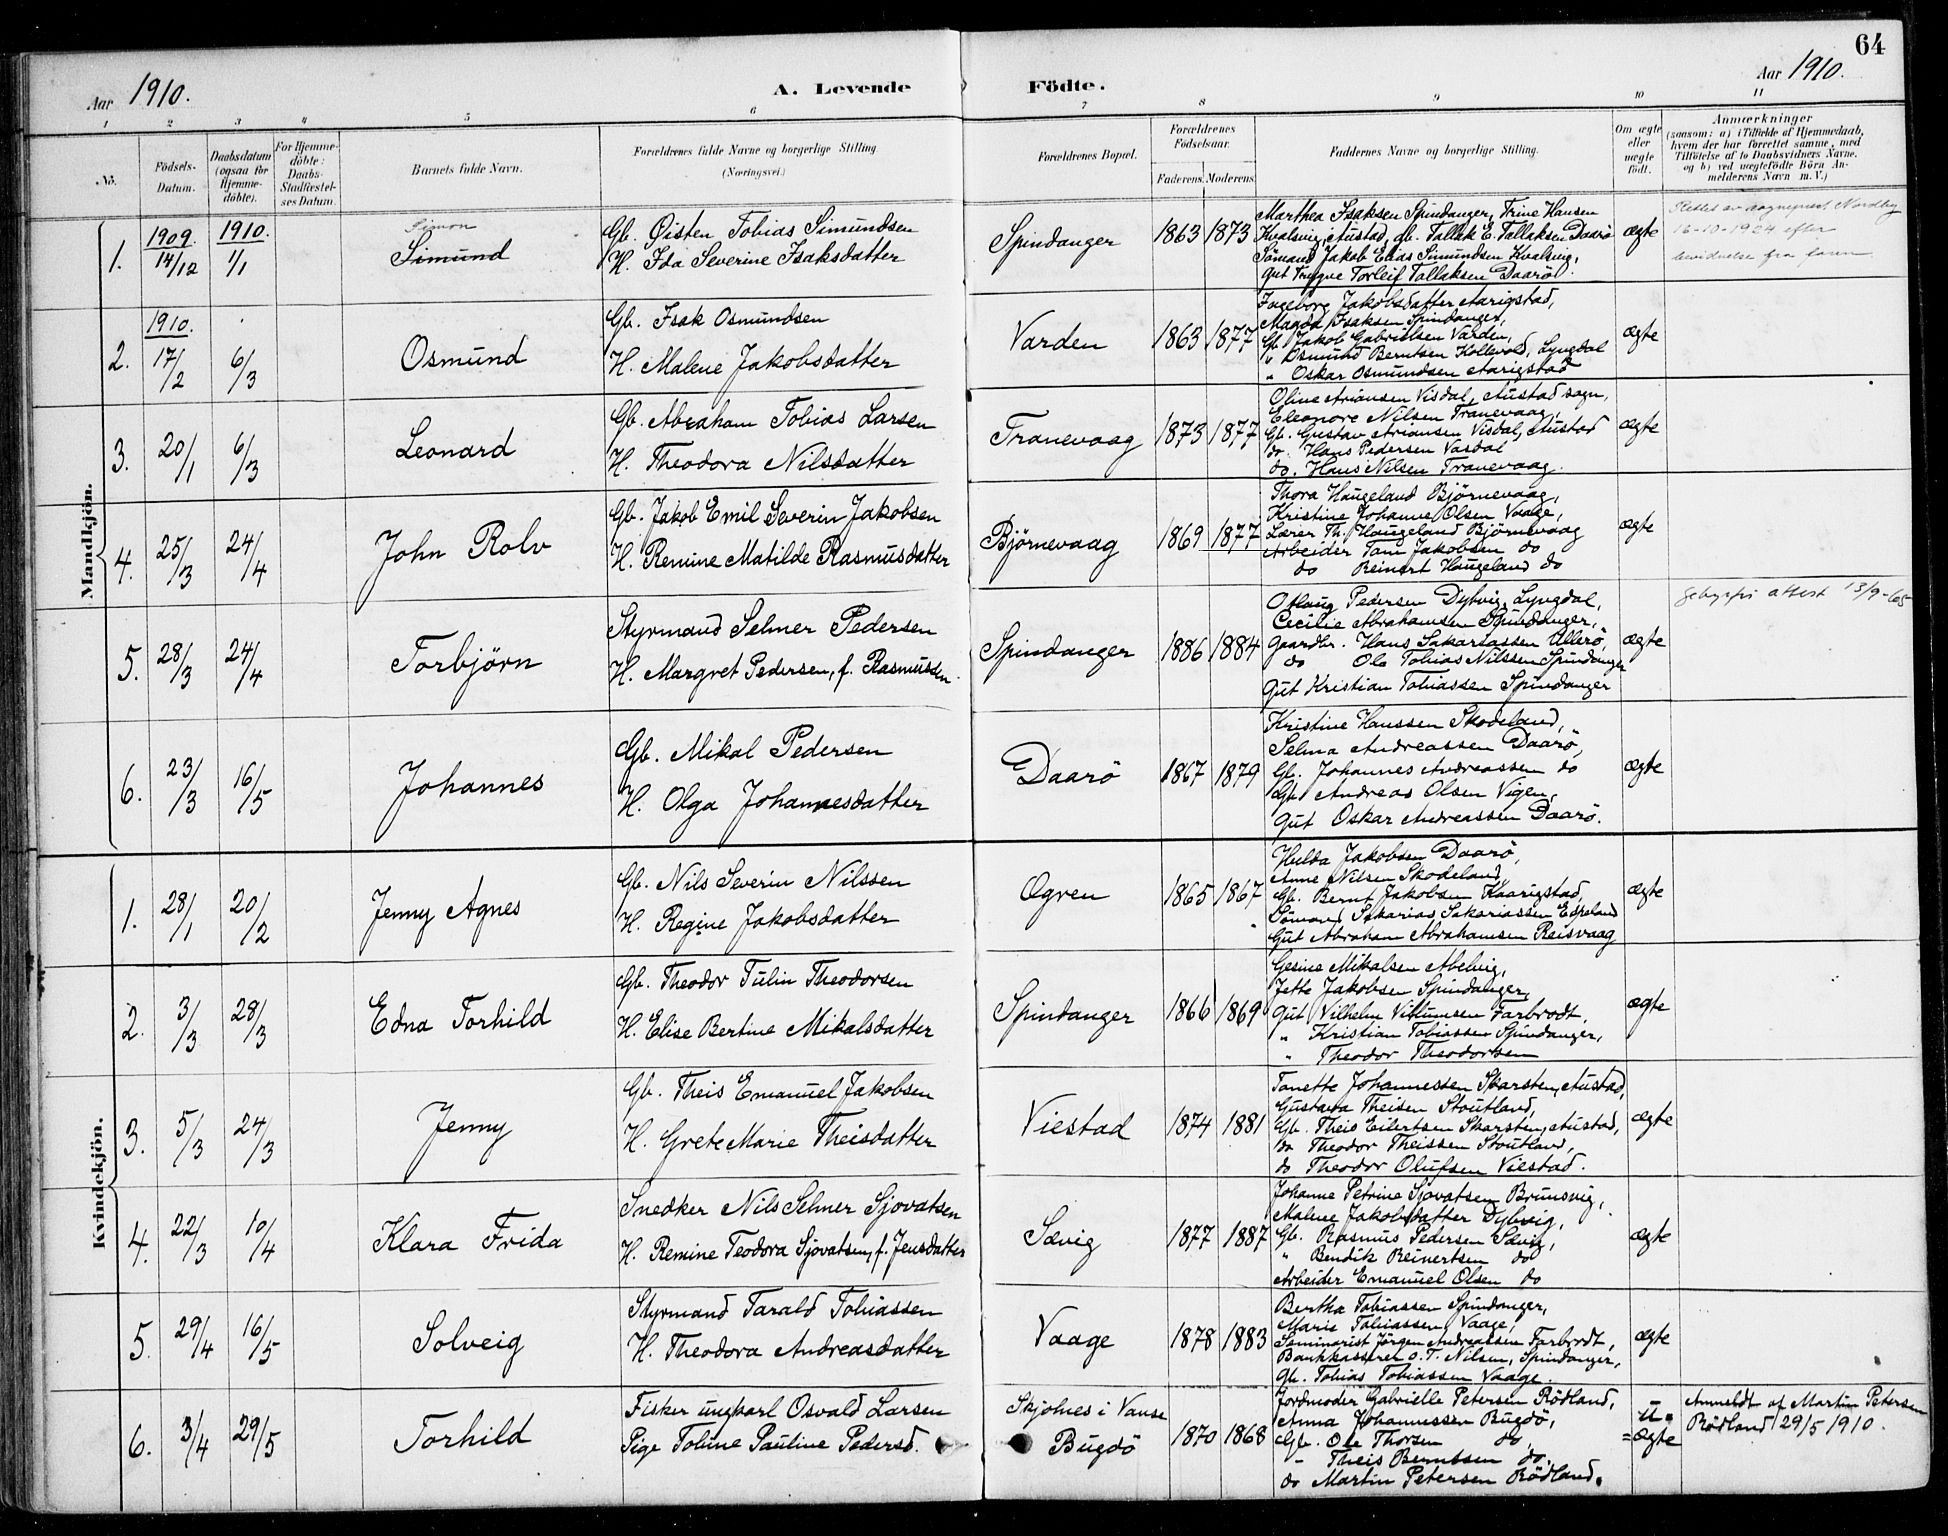 64
Aar 1910. A. Levende Födte. Aar 1910.
1 2 3 4 5 6 7 8 9 10 11
No. Födsels-Datum. Daabsdatum (ogsaa for Hjemme-döbte). For Hjemme-döbte: Daabs-Stadfæstel-ses Datum. Barnets fulde Navn. Forældrenes fulde Navne og borgerlige Stilling (Næringsvei.) Forældrenes Bopæl. Forældrenes Födselsaar. Faderens. Moderens. Faddernes Navne og borgerlige Stilling. Om ægte eller uægte födt. Anmærkninger (saasom: a) i Tilfælde af Hjemmedaab, hvem der har forrettet samme, med Tilföielse af to Daabsvidners Navne, og b) ved uægtefödte Börn An-melderens Navn m. V.)
Mandkjön.
1. 1909. 14/12 1910. 1/1 Simon Simund
Gb. Øisten Tobias Simundsen
H. Ida Severine Isaksdatter
Spindanger 1863 1873
Marthea Isaksen Spindanger, Trine Hansen
Kvalsvig, Austad, Gb. Tallak E. Tallaksen Daarö
Sömand Jakob Elias Simundsen Kvalsvig,
Gut Trygve Torleif Tallaksen Daarö.
ægte
Rettet av sogneprest Nordby
16-10-1924 efter
bevidnelse fra faren
2. 1910. 17/2 6/3 Osmund
Gb. Isak Osmundsen
H. Malene Jakobsdatter
Varden 1863 1877
Ingeborg Jakobsdatter Aarigstad,
Magda Isaksen Spindanger,
Gb. Jakob Gabrielsen Varden,
" Osmund Berntsen Kollevold, Lyngdal
" Oskar Osmundsen Aarigstad
ægte
3. 20/1 6/3 Leonard
Gb. Abraham Tobias Larsen
H. Theodora Nilsdatter
Tranevaag 1873 1877
Oline Ariansen Visdal, Austad sogn,
Eleonore Nilsen Tranevaag,
Gb. Gustav Ariansen Visdal, Austad
do. Hans Pedersen Vasdal
do. Hans Nilsen Tranevaag.
ægte
4. 25/3 24/4 John Rolv
Gb. Jakob Emil Severin Jakobsen
H. Remine Matilde Rasmusdatter
Björnevaag 1869 1877
Thora Haugeland Björnevaag,
Kristine Johanne Olsen Vaage,
Lærer Th. Haugeland Björnevaag
Arbeider Tom Jakobsen do
do Reinert Haugeland do
ægte
5. 28/3 24/4 Torbjörn
Styrmand Selmer Pedersen
H. Margret Pedersen, f. Rasmussen.
Spindanger 1886 1884
Otlaug Pedersen Dybvig, Lyngdal,
Cecilie Abrahamsen Spindanger,
Gaardbr. Hans Sakariassen Ullerö,
do Ole Tobias Nilssen Spindanger
Gut Kristian Tobiassen Spindanger
ægte
Gebyrfri attest 13/9-65
6. 23/3 16/5 Johannes
Gb. Mikal Pedersen
H. Olga Johannesdatter
Daarö 1867 1879
Kristine Hanssen Skodeland,
Selma Andreassen Daarö,
Gb. Johannes Andreassen do
Gb. Andreas Olsen Vigen,
Gut Oskar Andreassen Daarö.
ægte
Kvindekjön.
1. 28/1 20/2 Jenny Agnes
Gb. Nils Severin Nilssen
H. Regine Jakobsdatter
Øgren 1865 1867
Hulda Jakobsen Daarö,
Anne Nilsen Skodeland,
Gb. Bernt Jakobsen Kaarigstad,
Sömand Sakarias Sakariassen Espeland
Gut Abraham Abrahamsen Reisvaag
ægte
2. 3/3 28/3 Edna Torhild
Gb. Theodor Tulin Theodorsen
H. Elise Bertine Mikalsdatter
Spindanger 1866 1869
Gesine Mikalsen Abelvig,
Jette Jakobsen Spindanger,
Gut Vilhelm Villumsen Farbrodt,
" Kristian Tobiassen Spindanger,
" Theodor Theodorsen
ægte
3. 5/3 24/3 Jenny
Gb. Theis Emanuel Jakobsen
H. Grete Marie Theisdatter
Viestad 1874 1881
Tanette Johannessen Skarsten, Austad,
Gustava Theisen Stoutland,
Gb. Theis Eilertsen Skarsten, Austad,
do Theodor Theissen Stoutland,
do Theodor Olufsen Viestad.
ægte
4. 22/3 10/4 Klara Frida
Snedker Nils Selmer Sjovatsen
H. Remine Teodora Sjovatsen, f. Jensdatter
Sævig 1877 1887
Johanne Petrine Sjovatsen Brunsvig,
Malene Jakobsdatter Dybvig,
Gb. Rasmus Pedersen Sævig,
" Bendik Reinertsen do
Arbeider Emanuel Olsen do
ægte
5. 29/4 16/5 Solveig
Styrmand Tarald Tobiassen
H. Theodora Andreasdatter
Vaage 1878 1883
Bertha Tobiassen Spindanger,
Marie Tobiassen Vaage,
Seminarist Jörgen Andreassen Farbrodt,
Bankkasserer O. T. Nilsen, Spindanger,
Gb. Tobias Tobiassen Vaage.
ægte
6. 3/4 29/5 Torhild
Fisker ungkarl Osvald Larsen
Pige Toline Pauline Pedersd.
Skjolnes i Vanse
Bugdö 1870 1868
Jordmoder Gabrielle Petersen Rödland,
Anna Johannessen Bugdö,
Gb. Ole Thorsen do,
- Theis Berntsen do.
do Martin Petersen Rödland.
u. = ægte
Anmeldt af Martin Petersen
Rödland 29/5 1910.